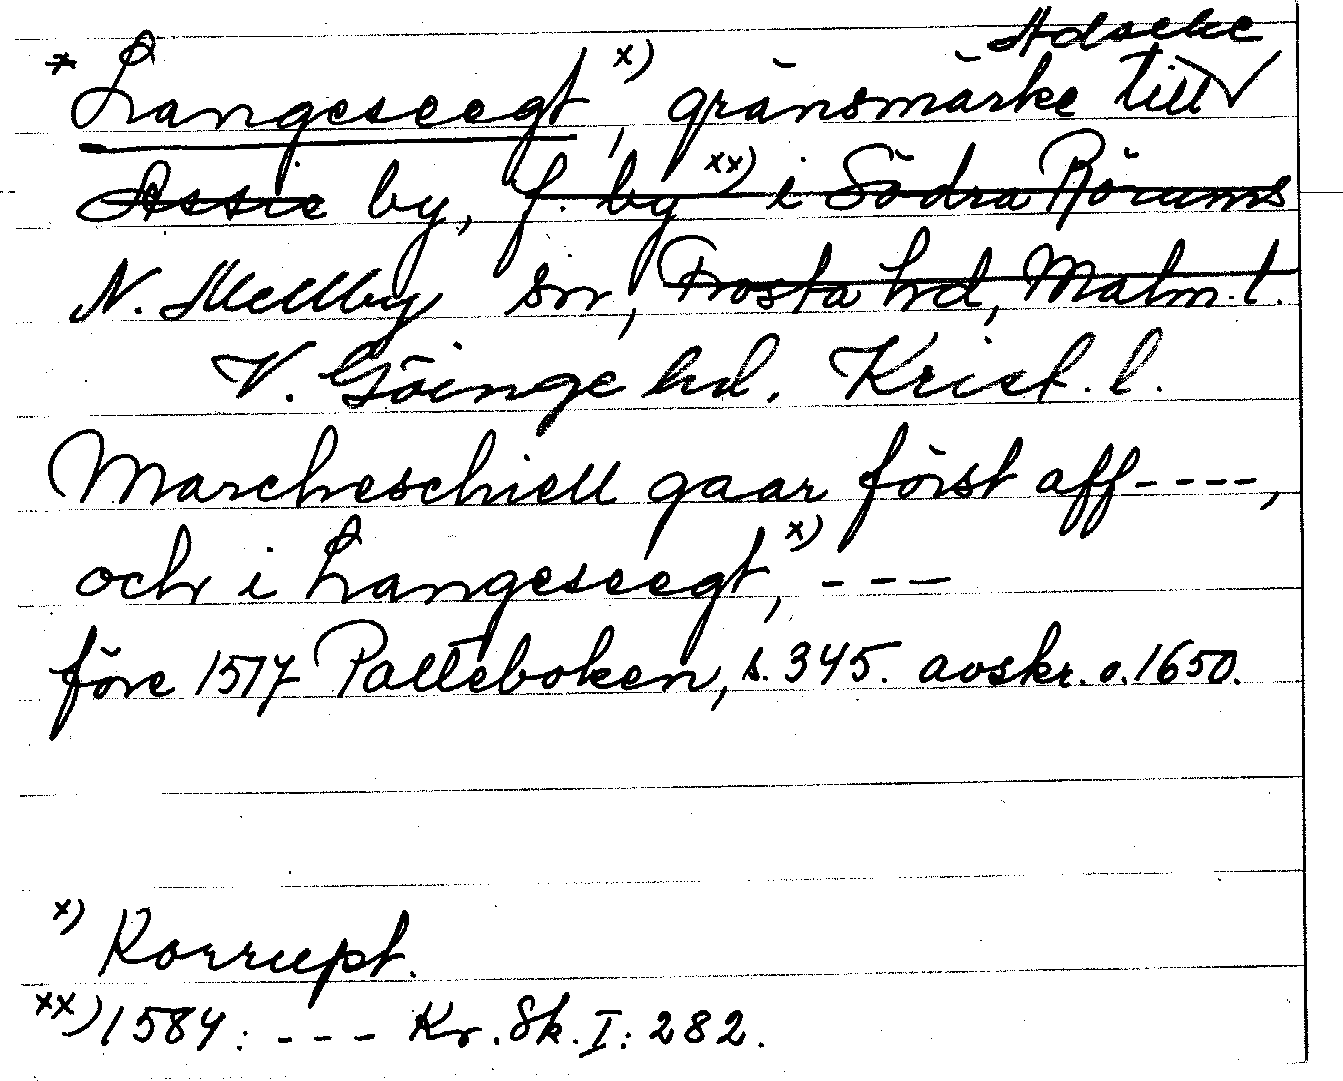 Adseke
* Langeseegt, x) gränsmärke till √
Assie by, f. by xx) i Södra Rörums
N. Mellby sn, Frosta hd, Malm. l.
V. Göinge hd. Krist. l.
Marcheschiell gaar först aff ----,
och i Langeseegt, x) ---
före 1517 Palteboken, s. 345. avskr. o. 1650.
x) Korrupt.
xx) 1584: --- Kr. Sk. I: 282.